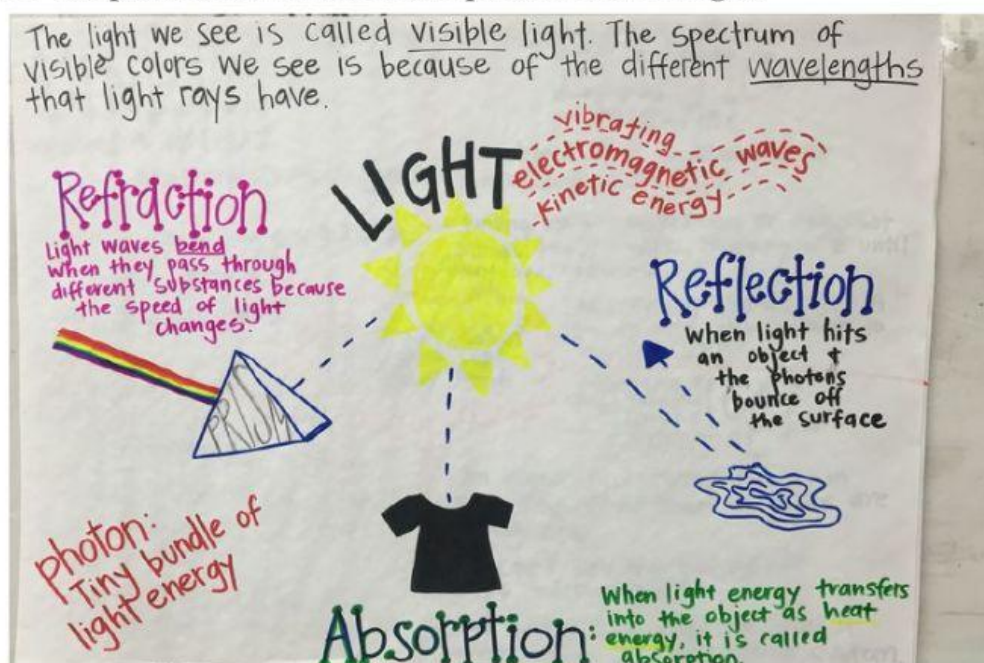 The light we see is called visible light. The spectrum of
visible colors we see is because of the different wavelengths
that light rays have.
LIGHT
vibrating
electromagnetic waves
kinetic energy
Refraction
Light waves bend
when they pass through
different substances because
the speed of light
changes.
PRISM
Reflection
When light hits
an object +
the photons
bounce off
the surface
photon:
Tiny bundle of
light energy
Absorption:
When light energy transfers
into the object as heat
energy, it is called
absorption.